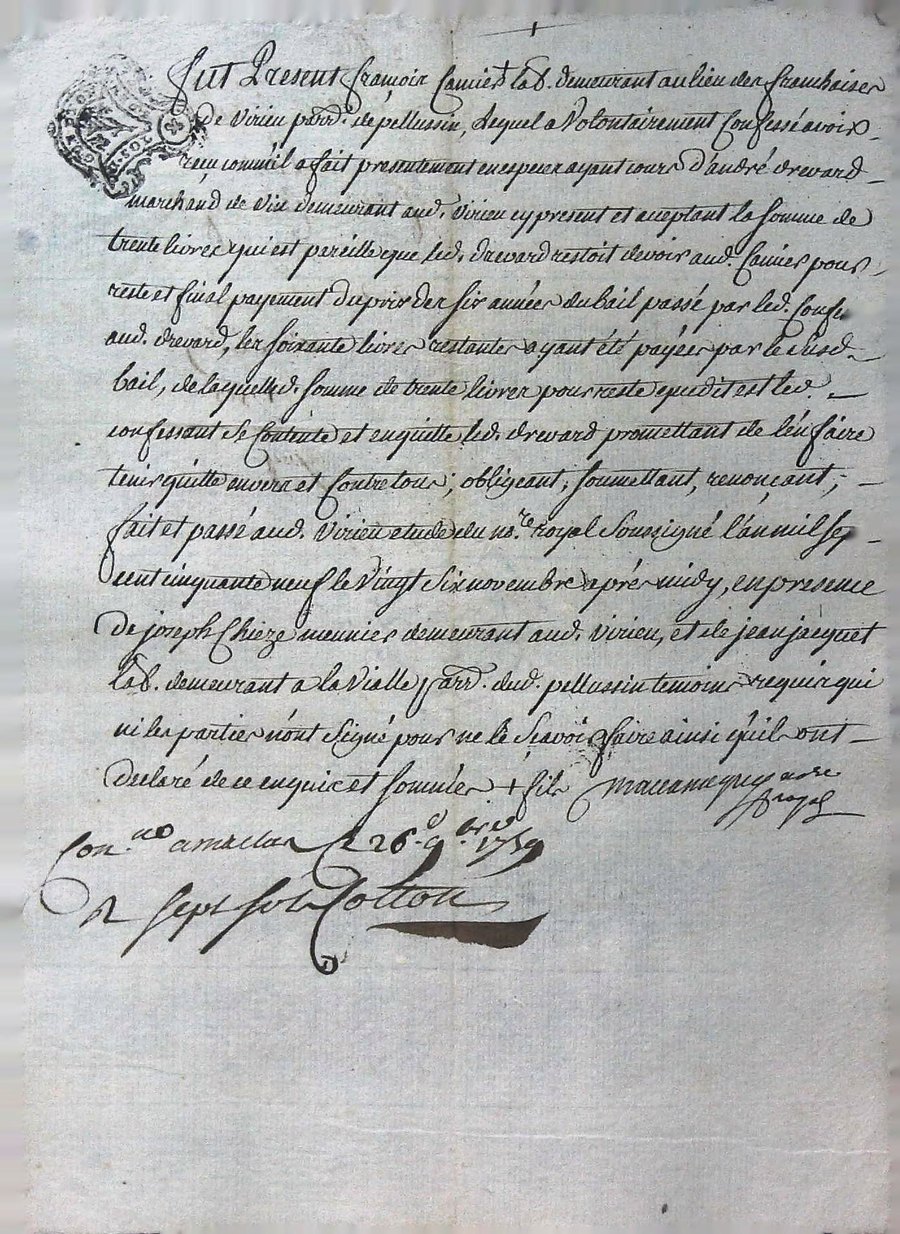 Fut Present françois Camier + lab. demeurant au lieu des franchises
de Virieu parr. de pellussin, Lequel a Volontairement Confessé avoir
reçu comme il a fait presentement en especes ayant cours d'andré drevard
marchand de vin demeurant aud. Virieu cy present et aceptant la somme de
trente livres qui est pareille que led. drevard restoit devoir aud. Camier pour
reste et final payement du prix des six années du bail passé par led. Confes
aud. drevard, les soixante livres restantes ayant été payées par le susd.
bail, de laquelle d. somme de trente livres pour reste que dit est led.
confessant se Contente et en quitte led. drevard promettant de l'en faire
tenir quitte envers et Contre tous, obligeant, soumettant, renonçant,
fait et passé aud. Virieu etude du no.re royal Soussigné l'an mil sep
cent cinquante neuf le Vingt Six novembre après midy, en presence
de joseph Chieze meunier demeurant aud. Virieu, et de jean jacquet
lab. demeurant a la Vialle parr. dud. pellussin temoins requis qui
ni les parties n'ont Signé pour ne le Sçavoir faire ainsi qu'ils ont
declaré de ce enquis et sommés + fils
Con. no a le 26 9bre 1759
R sept sols Cotton